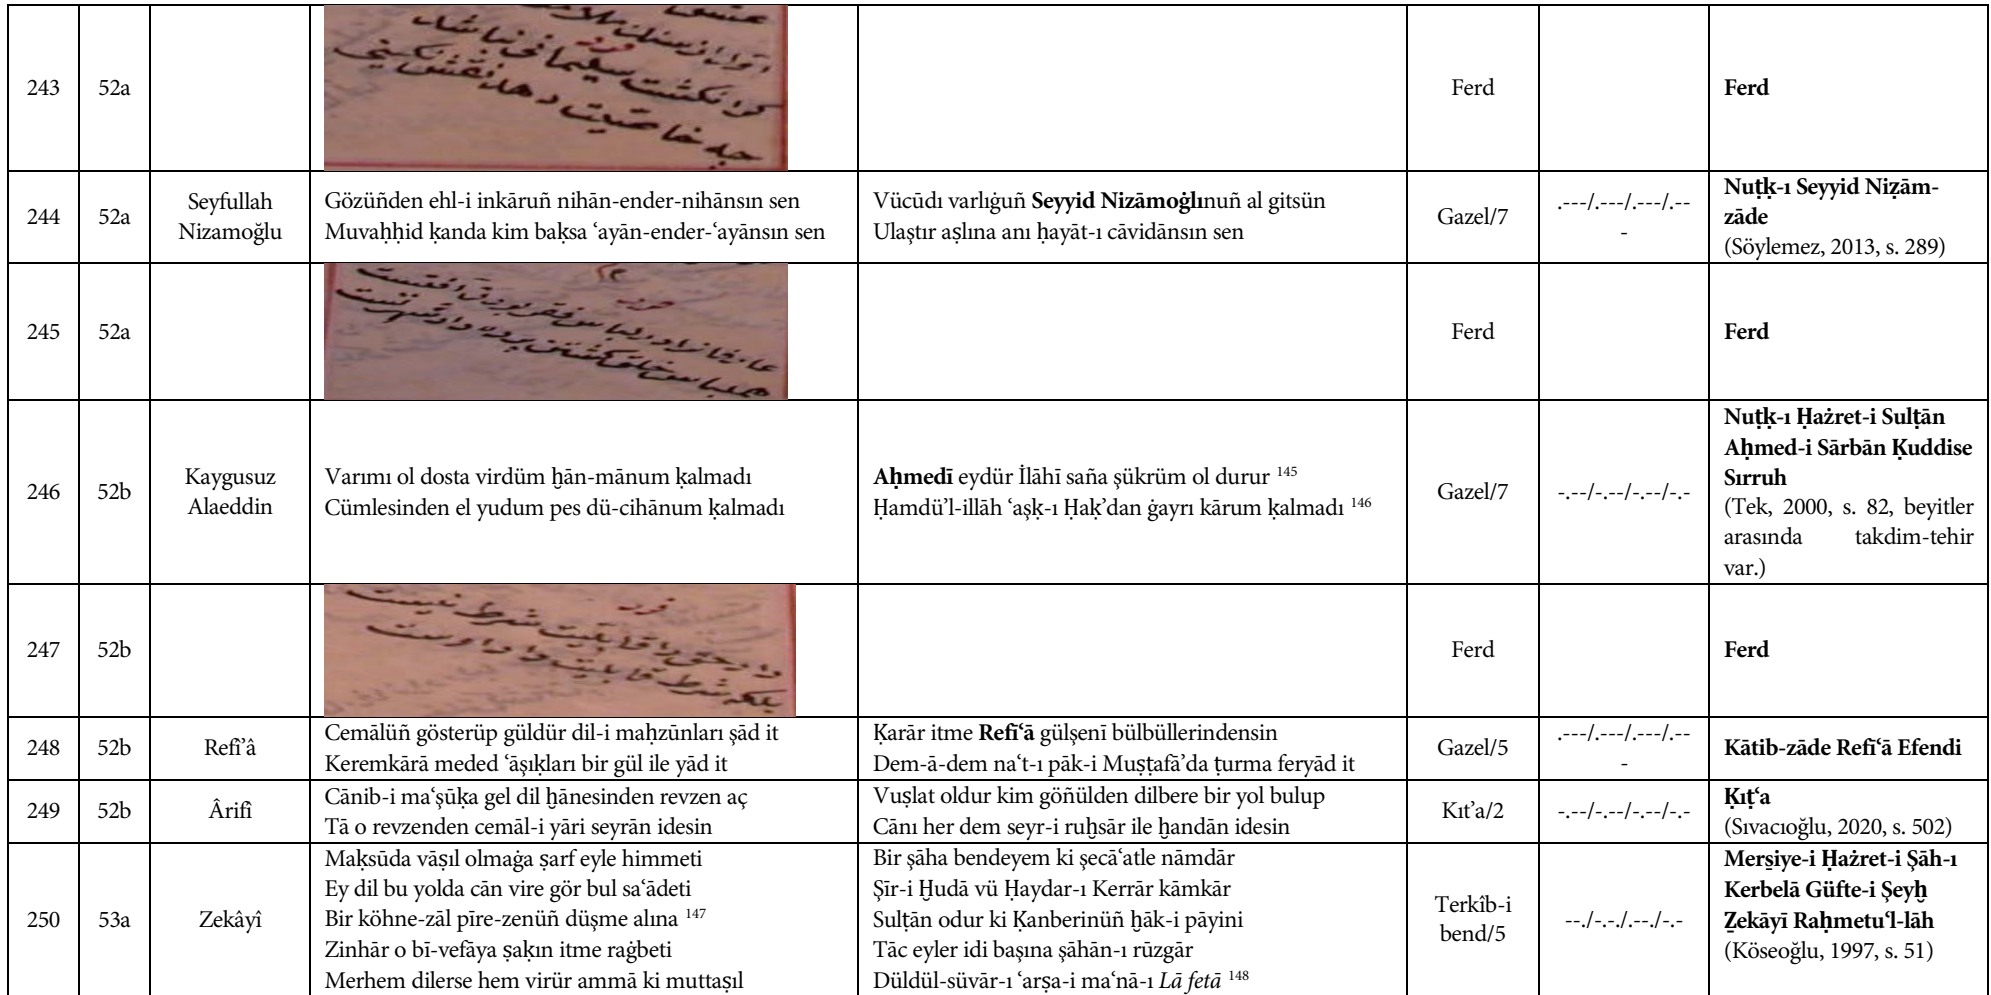 243 52a Ferd Ferd
فرد
كرانكشت سليمانى نباشد
چه خاصيت دهد نقش نكينى
244 52a Seyfullah Nizamoğlu
Gözüñden ehl-i inkāruñ nihān-ender-nihānsın sen
Muvaḥḥid ḳanda kim baḳsa ‘ayān-ender-‘ayānsın sen
Vücūdı varlıġuñ Seyyid Nizāmoġlınuñ al gitsün
Ulaştır aṣlına anı ḥayāt-ı cāvidānsın sen
Gazel/7
.---/.---/.---/.--
-
Nuṭḳ-ı Seyyid Niẓām-
zāde
(Söylemez, 2013, s. 289)
245 52a Ferd Ferd
فرد
246 52b Kaygusuz Alaeddin
Varımı ol dosta virdüm ḫān-mānum ḳalmadı
Cümlesinden el yudum pes dü-cihānum ḳalmadı
Aḥmedī eydür İlāhī saña şükrüm ol durur 145
Ḥamdü’l-illāh ‘aşḳ-ı Ḥaḳ’dan ġayrı kārum ḳalmadı 146
Gazel/7
-.--/-.--/-.--/-.-
Nuṭḳ-ı Ḥażret-i Sulṭān
Aḥmed-i Sārbān Ḳuddise
Sırruh
(Tek, 2000, s. 82, beyitler
arasında takdim-tehir
var.)
247 52b Ferd Ferd
فرد
داد حق را قابليت شرط نيست
بلكه شرط قابليت داد اوست
248 52b Refî’â
Cemālüñ gösterüp güldür dil-i maḥzūnları şād it
Keremkārā meded ‘āşıḳları bir gül ile yād it
Ḳarār itme Refī‘ā gülşenī bülbüllerindensin
Dem-ā-dem na‘t-ı pāk-i Muṣṭafā’da ṭurma feryād it
Gazel/5
.---/.---/.---/.--
-
Kātib-zāde Refī‘ā Efendi
249 52b Ârifî
Cānib-i ma‘şūḳa gel dil ḫānesinden revzen aç
Tā o revzenden cemāl-i yāri seyrān idesin
Vuṣlat oldur kim göñülden dilbere bir yol bulup
Cānı her dem seyr-i ruḫsār ile ḫandān idesin
Kıt’a/2
-.--/-.--/-.--/-.-
Ḳıṭ‘a
(Sıvacıoğlu, 2020, s. 502)
250 53a Zekâyî
Maḳsūda vāṣıl olmaġa ṣarf eyle himmeti
Ey dil bu yolda cān vire gör bul sa‘ādeti
Bir köhne-zāl pīre-zenüñ düşme alına 147
Zinhār o bī-vefāya ṣaḳın itme raġbeti
Merhem dilerse hem virür ammā ki muttaṣıl
Bir şāha bendeyem ki şecā‘atle nāmdār
Şīr-i Ḫudā vü Ḥaydar-ı Kerrār kāmkār
Sulṭān odur ki Ḳanberinüñ ḫāk-i pāyini
Tāc eyler idi başına şāhān-ı rūzgār
Düldül-süvār-ı ‘arṣa-i ma‘nā-ı Lā fetā 148
Terkîb-i
bend/5
--./-.-./.--./-.-
Mers̱iye-i Ḥażret-i Şāh-ı
Kerbelā Güfte-i Şeyḫ
Ẕekāyī Raḥmetu‘l-lāh
(Köseoğlu, 1997, s. 51)